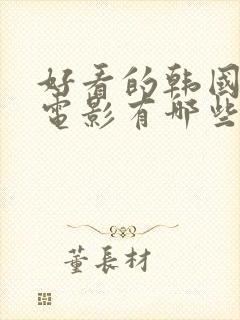 好看的韩国
電影有哪些
董長材